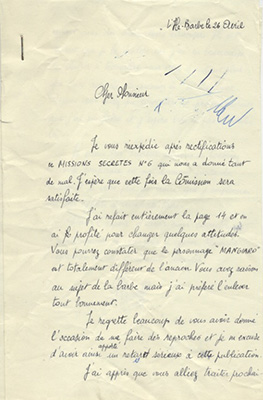 L'Ile-Barbe le 26 Avril
Cher Monsieur
Je vous réexpédie après rectifications
le MISSIONS SECRETES N°6 qui nous a donné tant
de mal. J'espère que cette fois la Commission sera
satisfaite.
J'ai refait entièrement la page 14 et en
ai profité pour changer quelques attitudes.
Vous pourrez constater que le personnage
est totalement différent de l'ancien. Vous avez raison
au sujet de la barbe mais j'ai préféré l'enlever
tout bonnement.
Je regrette beaucoup de vous avoir donné
l'occasion de me faire des reproches et je m'excuse
d'avoir ainsi apporté un retard sérieux à cette publication.
J'ai appris que vous alliez traiter prochai-